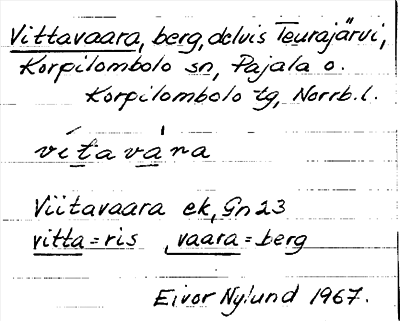 Vittavaara, berg, delvis Teurajärvi,
Korpilombolo sn, Pajala o.
Korpilombolo tg, Norrb. l.
vítavàra
Viitavaara ek, Gn 23
vitta = ris , vaara = berg
Eivor Nylund 1967.